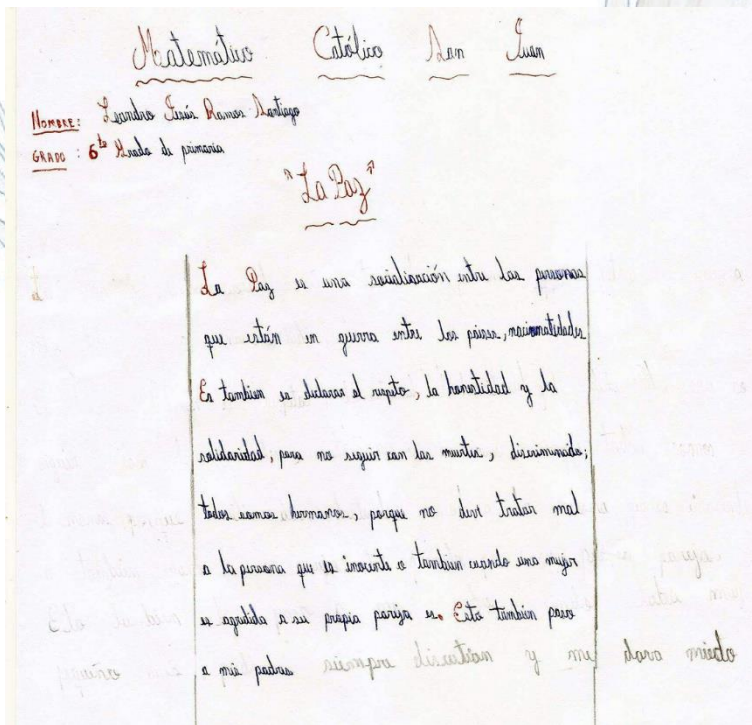 Matemático Católico San Juan
NOMBRE: Leandro Jesús Ramos Santiago
GRADO: 6to Grado de primaria
"La Paz"
La Paz es una socialización entre las personas
que están en guerra entre los países, nacionalidades
Es también es declarar el respeto, la honestidad y la
solidaridad; para no seguir con las muertes, discriminación;
todos somos hermanos, porque no deve tratar mal
a la persona que es inocente o también cuando una mujer
es agredida a su propia pareja es. Esto también paso
a mis padres